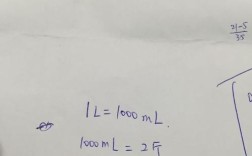 21-5
35
1L=1000mL.
1000mL=2斤